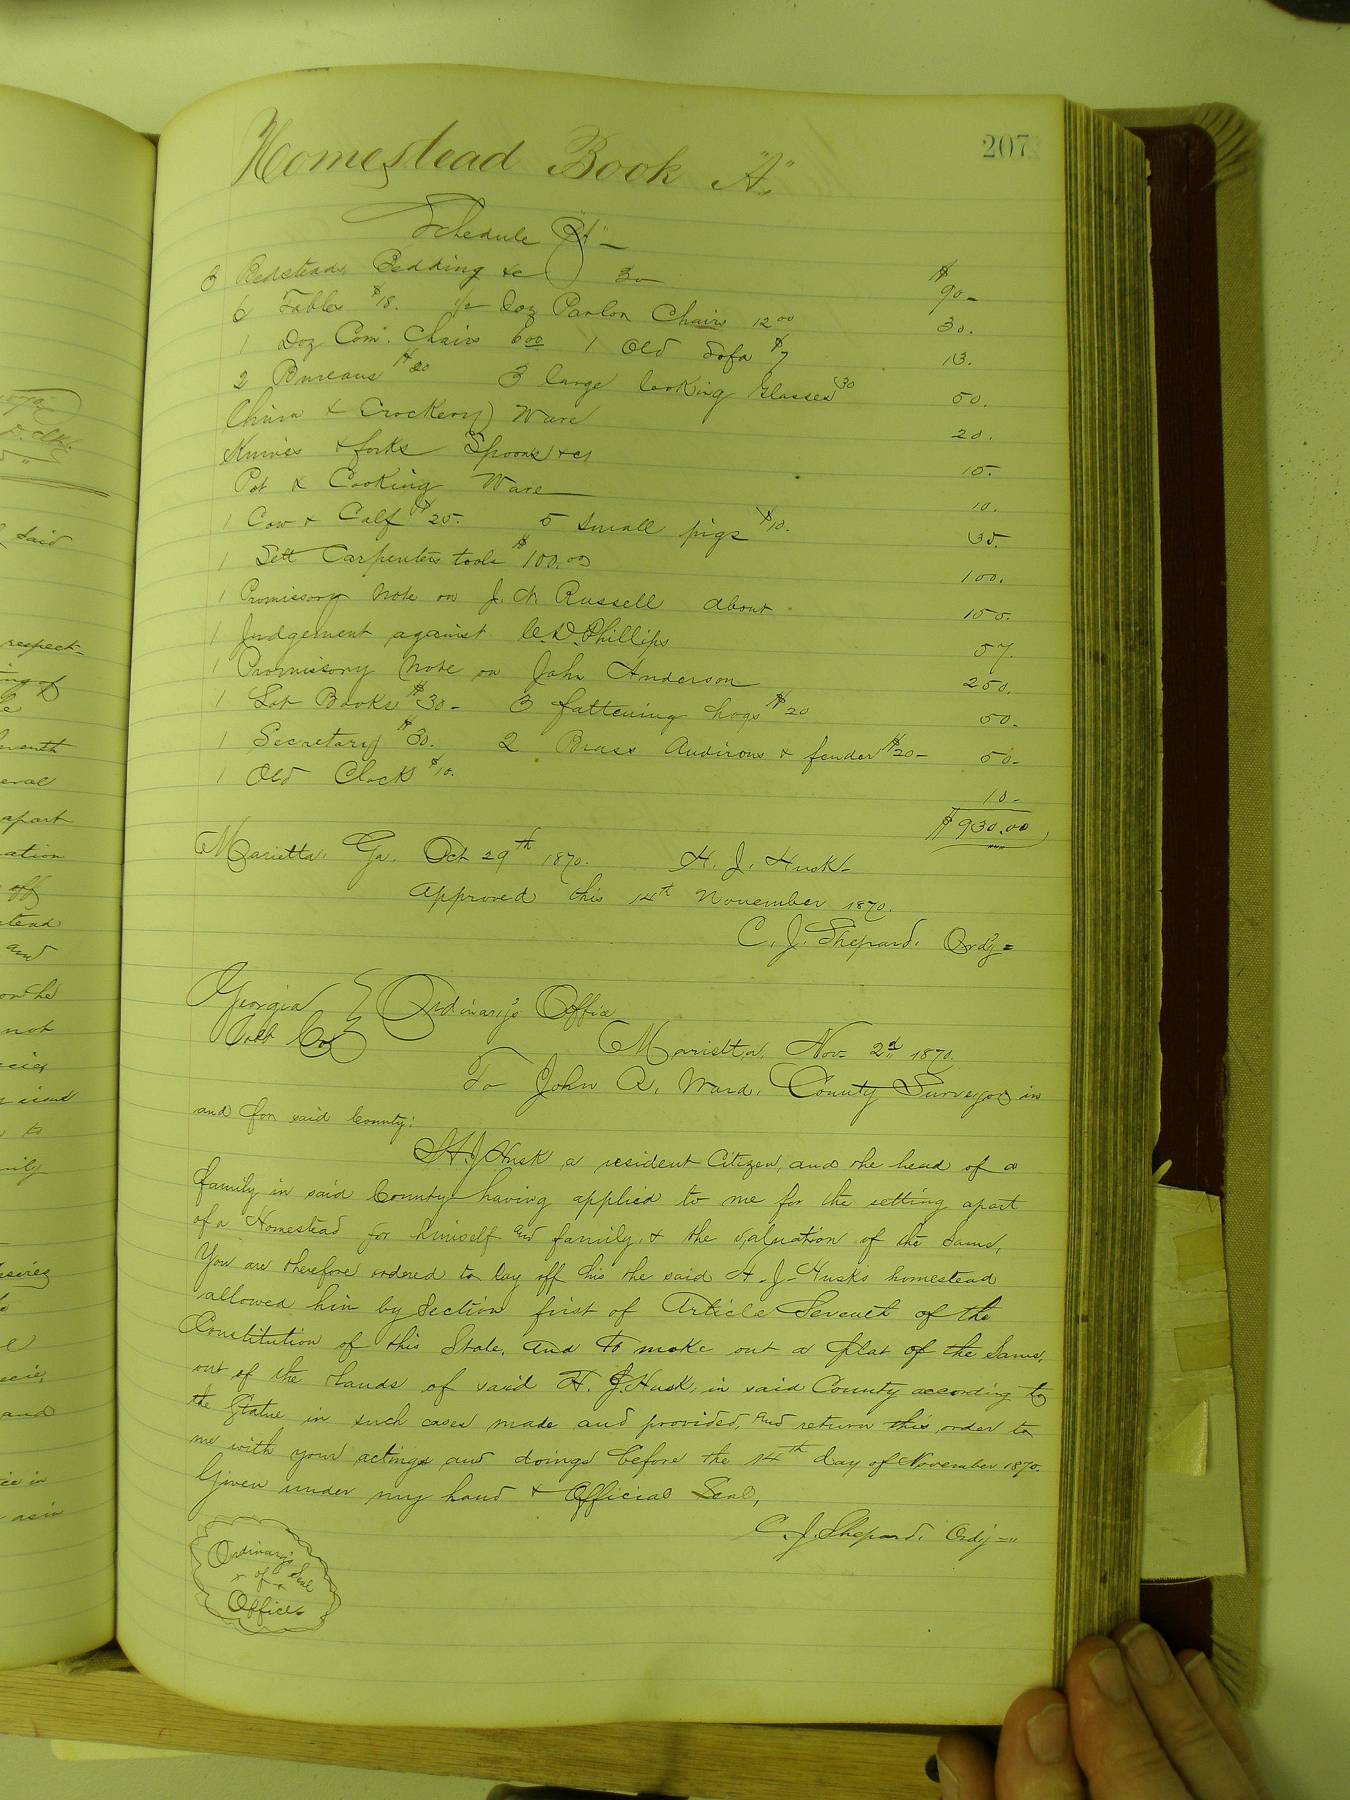 207
Homestead Book "A"
Schedule "A"
3 Bedsteads Bedding &c 30 $ 90-
6 Tables $18. 1/2 Doz Parlor Chairs 12 00 30.
1 Doz Com. Chairs 6 00 1 Old Sofa $7 13.
2 Bureaus $20 3 large looking Glasses 30 50.
China & Crockery Ware 20.
Knives & forks Spoons &c 15.
Pot & Cooking Ware 10.
1 Cow & Calf $25. 5 small pigs $10. 35.
1 Sett Carpenters tools $100.00 100.
1 Promissory Note on J. A. Russell about 150.
1 Judgement against C. D. Phillips 57.
1 Promissory Note on John Anderson 250.
1 Lot Books $30- 3 fattening hogs $20 50.
1 Secretary $30. 2 Brass Andirons & fender $20- 50-
1 Old Clock $10. 10-
$930.00
Marietta. Ga. Oct 29th 1870. H. J. Husk-
Approved this 14th November 1870.
C. J. Shepard. Ordy=
Georgia } Ordinary's Office
Cobb Co Marietta, Nov- 2d 1870.
To John R. Ward. County Surveyor in
and for said County:
H. J. Husk a resident Citizen, and the head of a
family in said County having applied to me for the setting apart
of a Homestead for himself and family, & the valuation of the same,
You are therefore ordered to lay off his the said H-J-Husk's homestead
allowed him by Section first of Article Seventh of the
Constitution of this State. And to make out a plat of the Same,
out of the lands of said H. J. Husk, in said County according to
the Statue in such cases made and provided, and return this order to
me with your actings and doings before the 14th day of November 1870.
Given under my hand & Official Seal,
C. J. Shepard. Ordy="
Ordinary's
of Seal
Office
said
respect-
apart
ation
off
and
not
to
and